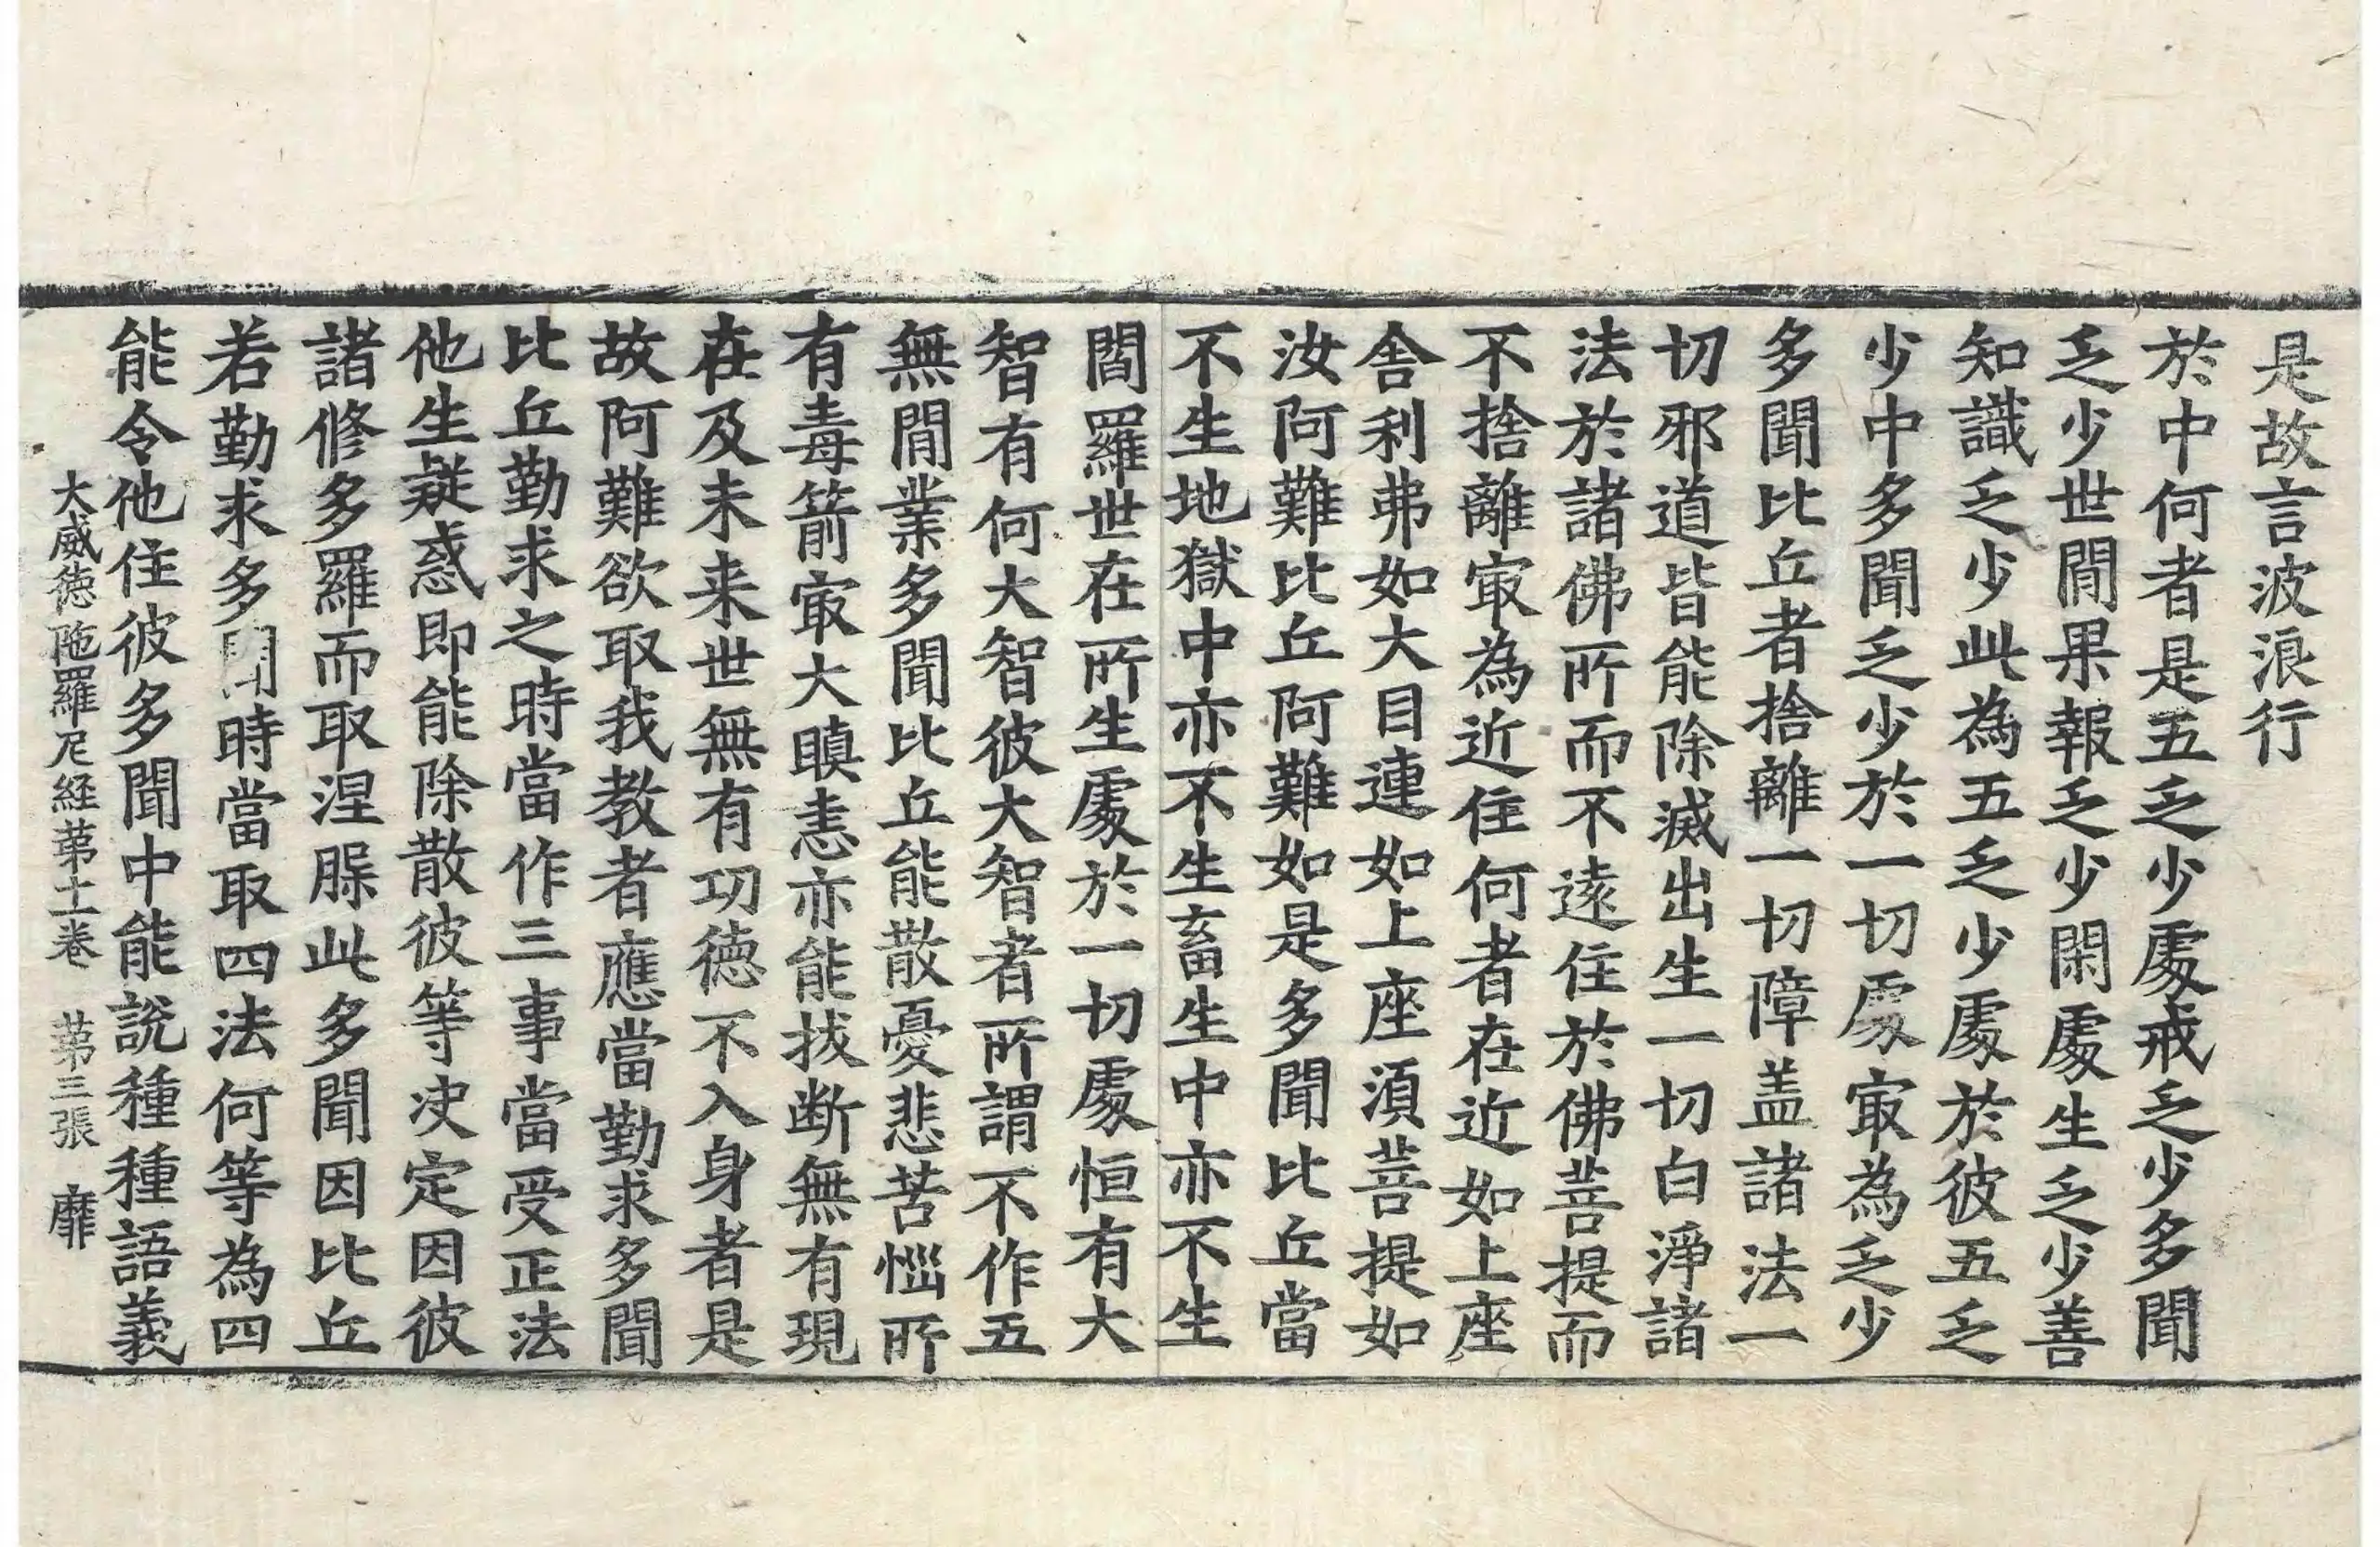 是故言波浪行
於中何者是五乏少處戒乏少多聞
乏少世間果報乏少閑處生乏少善
知識乏少此為五乏少處於彼五乏
少中多聞乏少於一切處㝡為乏少
多聞比丘者捨離一切障盖諸法一
切邪道皆能除滅出生一切白淨諸
法於諸佛所而不遠住於佛菩提而
不捨離㝡為近住何者在近如上座
舎利弗如大目連如上座須菩提如
汝阿難比丘阿難如是多聞比丘當
不生地獄中亦不生畜生中亦不生
閻羅世在所生處於一切處恒有大
智有何大智彼大智者所謂不作五
無間業多聞比丘能散憂悲苦惱所
有毒箭㝡大瞋恚亦能拔断無有現
在及未来世無有功德不入身者是
故阿難欲取我教者應當勤求多聞
比丘勤求之時當作三事當受正法
他生疑惑即能除散彼等决定因彼
諸修多羅而取涅槃此多聞因比丘
若勤求多聞時當取四法何等為四
能令他住彼多聞中能說種種語義
大威徳陁羅尼経苐十一卷　苐三張　靡